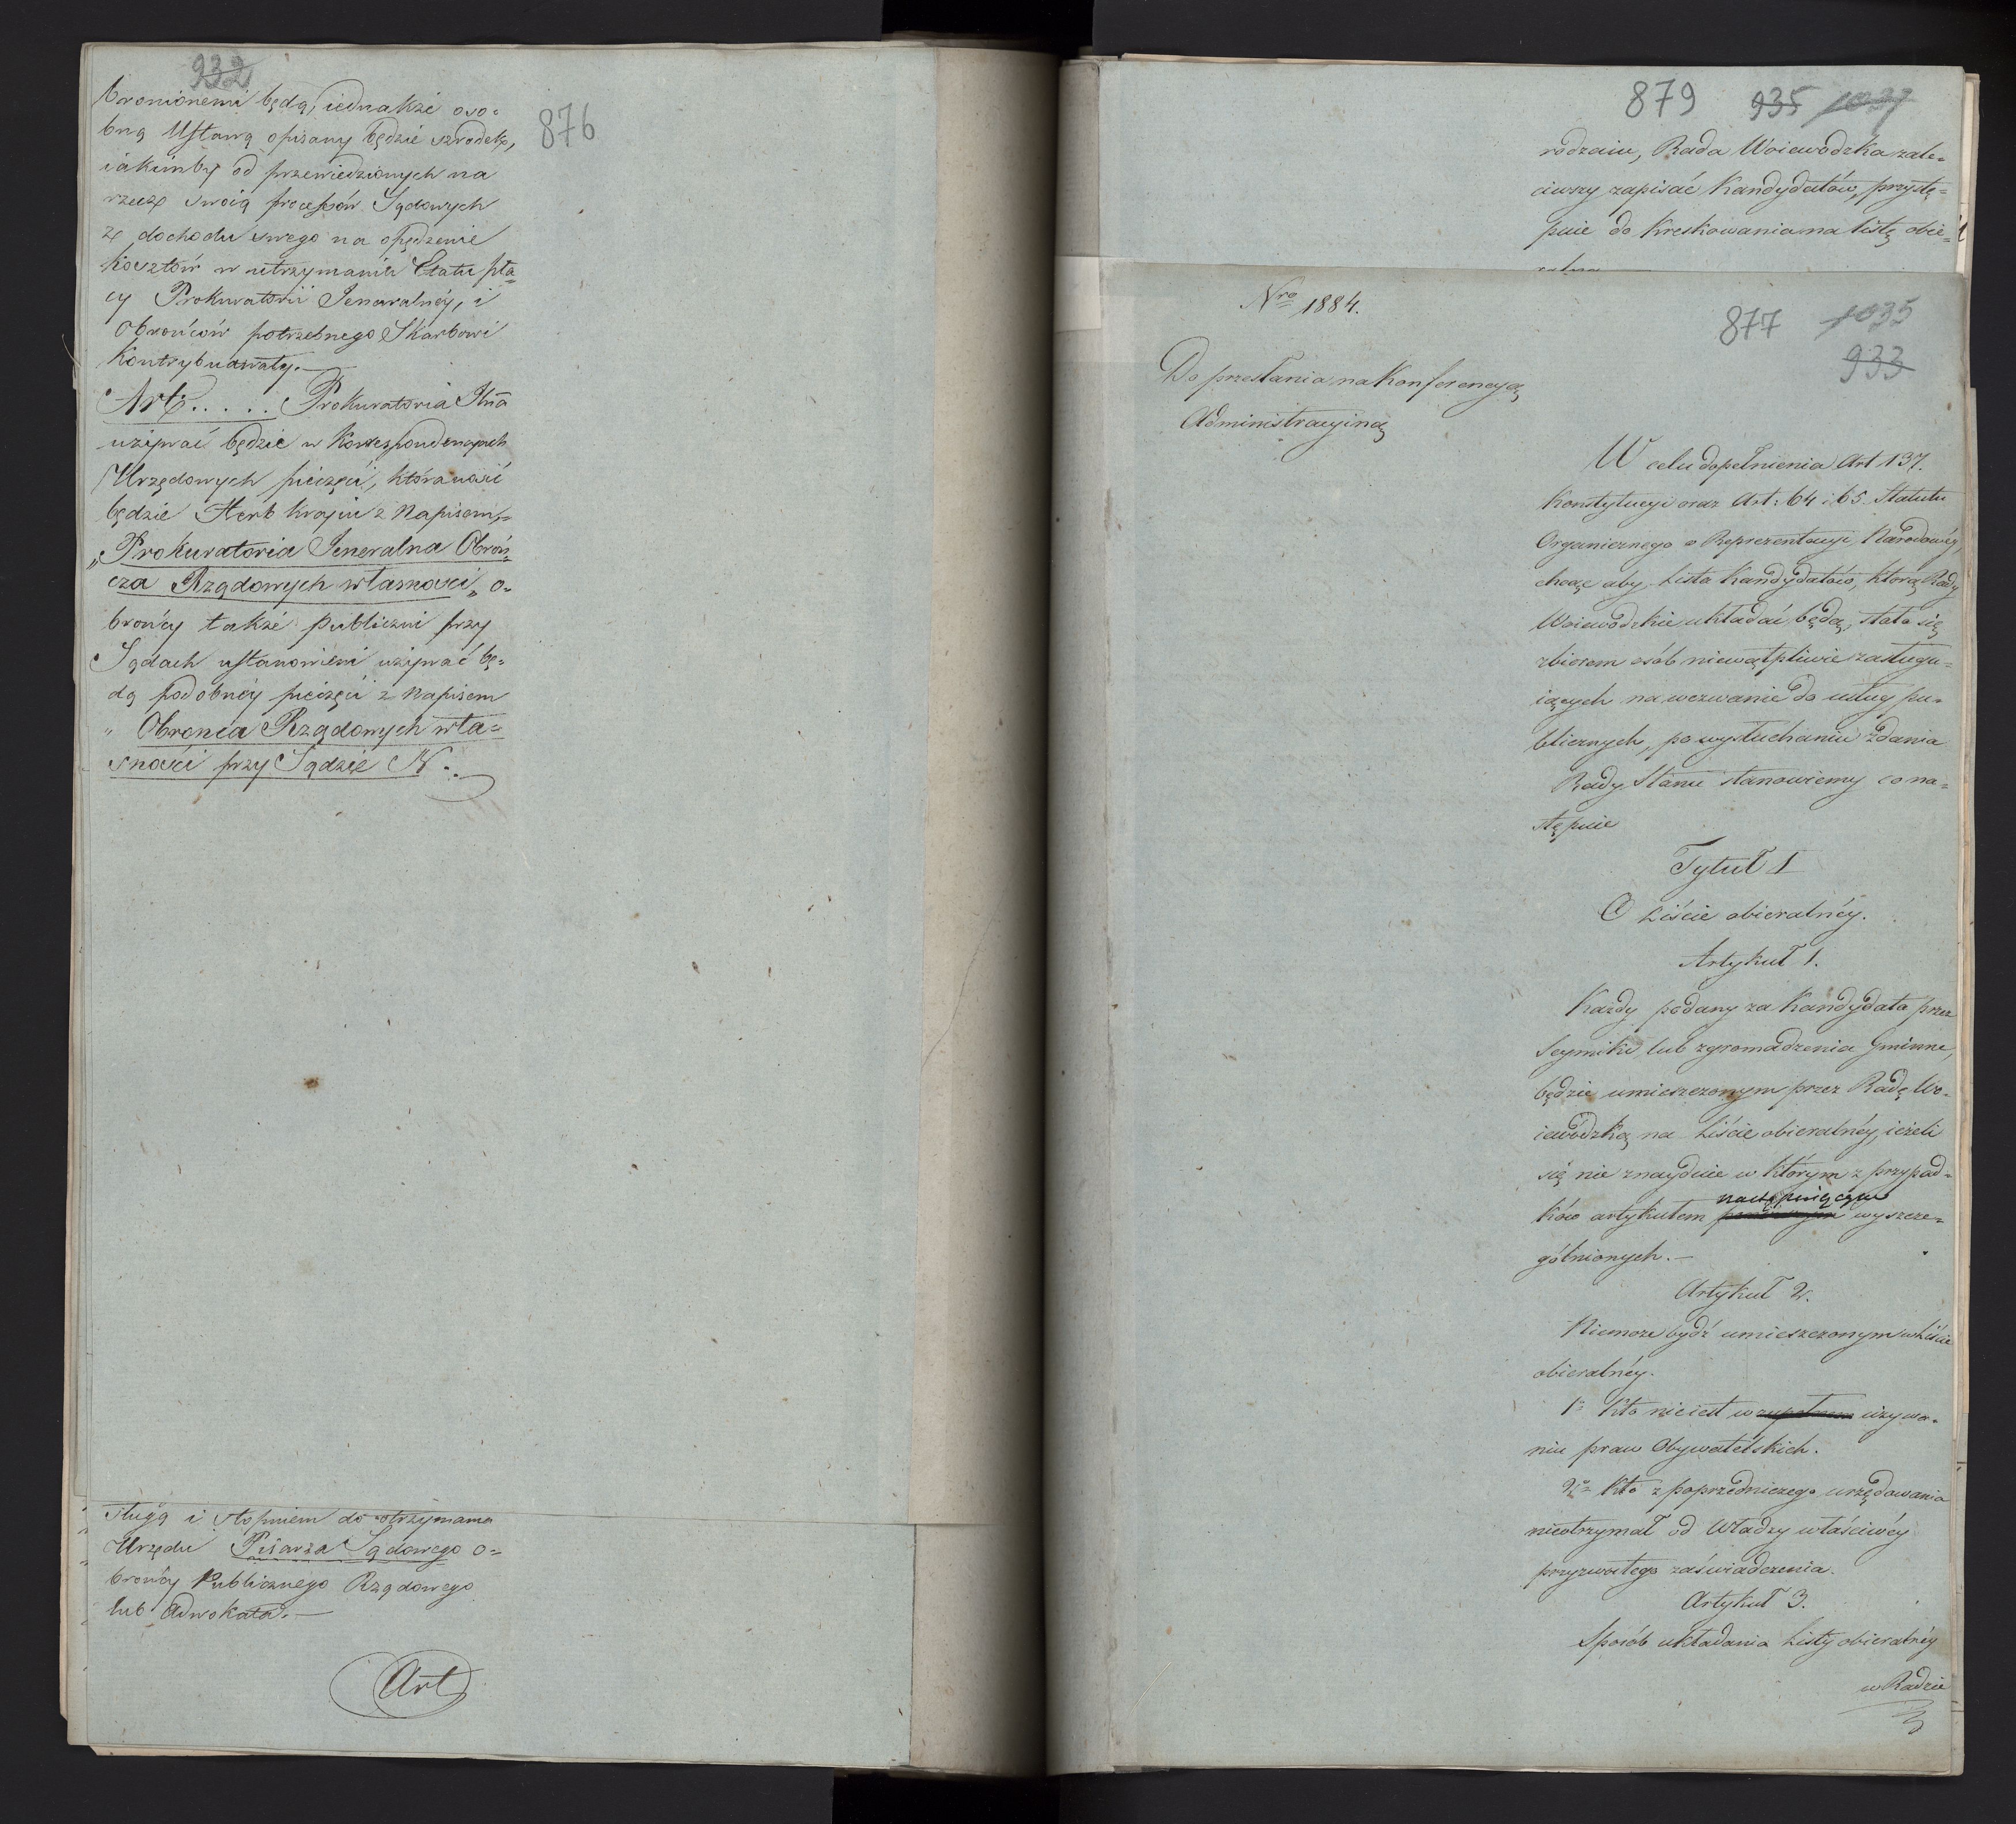 932
bronionemi będą, iednakże oso-
bną Ustawą opisany będzie szrodek,
iakimby od przewiedzionych na
rzecz swoią processów Sądowych
z dochodu swego na opędzenie
kosztów w utrzymania Etatu pła-
cy Prokuratorii Jeneralnéy, i
Obrońców potrzebnego Skarbowi
kontrybuowały.—
Art: . . . . . Prokuratoria Jlna
używać będzie w korrespondencyach
Urzędowych pieczęci, która mieć
będzie Herb kraiu z Napisem,=
„Prokuratoria Jeneralna Obroń-
cza Rządowych własności„ o-
brońcy także publiczni przy
Sądach ustanowieni używać bę-
dą podobnéy pieczęci z Napisem
„ Obronca Rządowych wła=
sności przy Sądzie N..
876
sługą i stopniem do otrzymania
Urzędu Pisarza Sądowego o-
brońcy Publicznego Rządowego
lub Adwokata.—
Art
879 935 1037
rodzaiu, Rada Woiewodzka zale-
ciwszy zapisać Kandydatów, przystę-
puie do kreskowania na listę obie-
ralną
Nro 1884.
877 1035
933
Do przesłania na Konferencyą
Administracyiną
W celu dopełnienia Art 137.
Konstytucyi oraz Art: 64 i 65 Statutu
Organicznego o Reprezentacyi Narodowéy,
chcąc aby Lista Kandydatów, którą Rady
Woiewodzkie układać będą, stała się
zbiorem osób niewątpliwie zasługu-
iących na wezwanie do usług pu-
blicznych, po wysłuchaniu zdania
Rady Stanu stanowiemy co na-
stępuie
Tytuł I
O Liście obieralnéy.
Artykuł 1.
Każdy podany za Kandydata przez
Seymiki lub zgromadzenia Gminne,
będzie umieszczonym przez Radę Wo-
iewódzką na Liście obieralnéy, ieżeli
się nie znayduie w którym z przypad-
nastepuiącym
ków artykułem wyszcze-
gólnionych.—
Artykuł 2.
Niemoże bydź umieszczonym w Liście
obieralnéy.
1o Kto nieiest w zupełnem używa-
niu praw Obywatelskich.
2o Kto z poprzedniczego urzędowania
nieotrzymał od Władzy właściwéy
przyzwoitego zaświadczenia.
Artykuł 3.
Sposób układania Listy obieralnéy
w Radzie